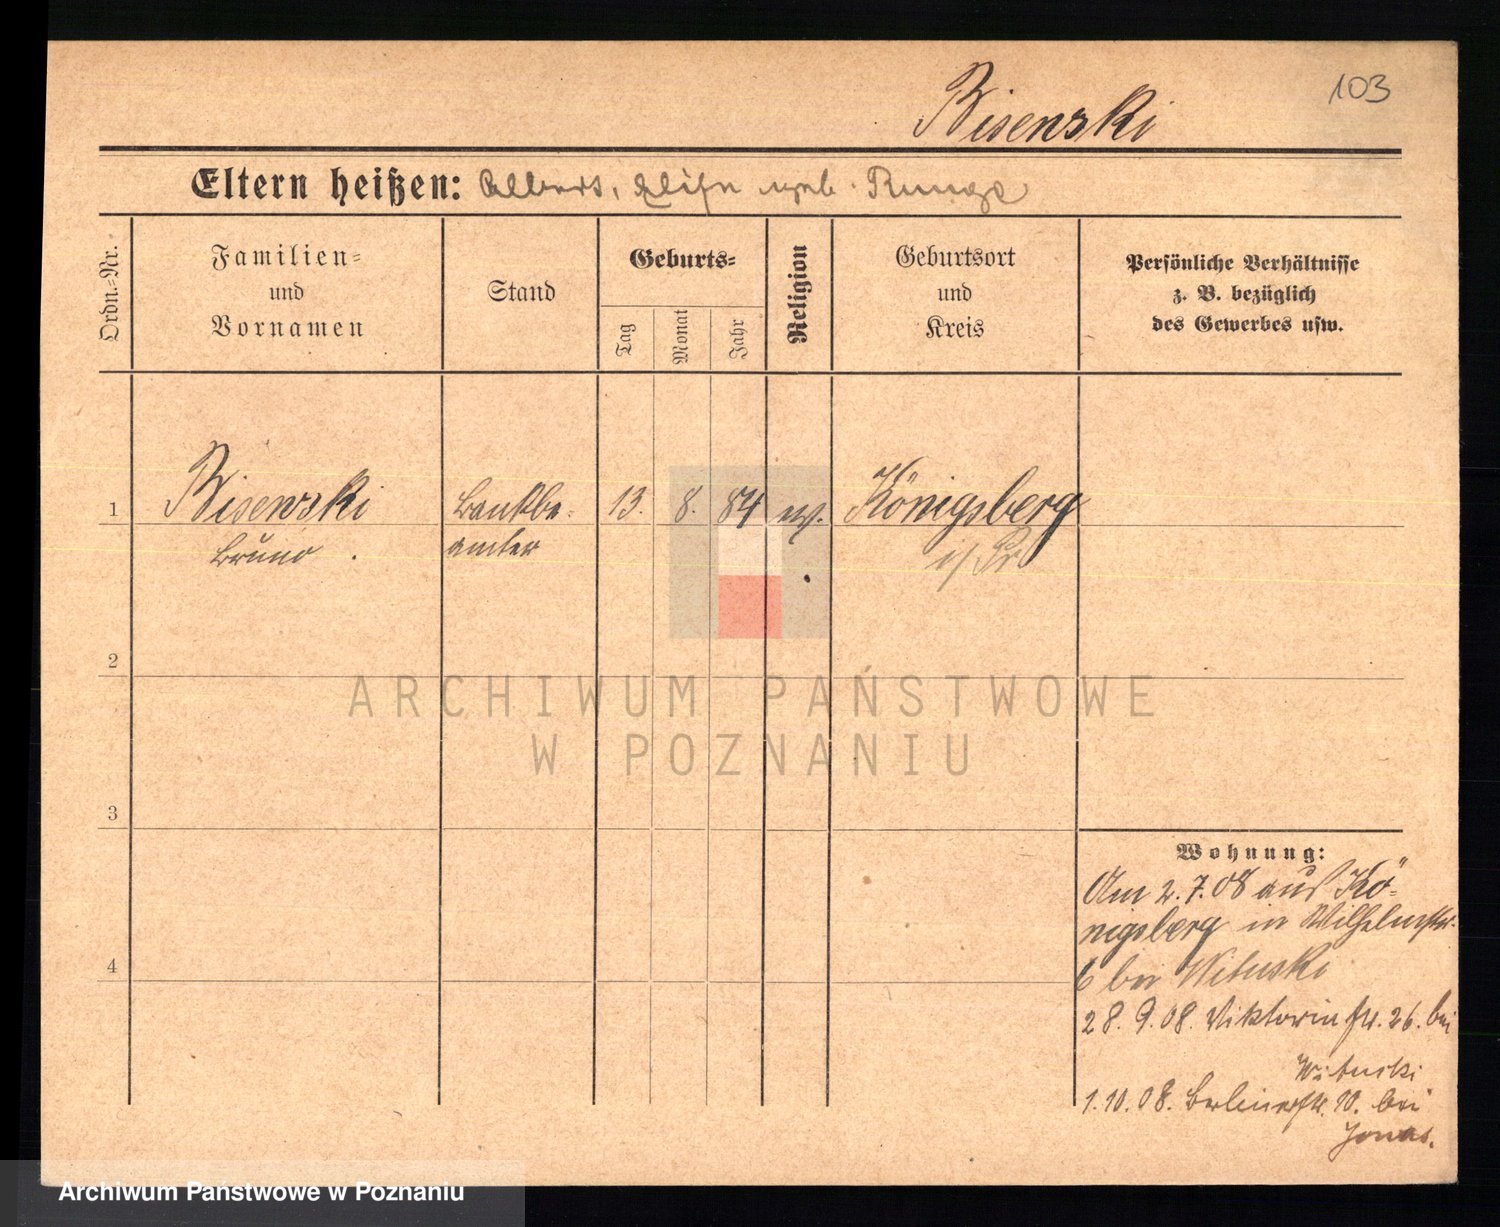 103
Bisewski
Eltern heißen: Albert, geb. Runge
Ordn.-Nr.
Familien-
und
Vornamen
Stand
Geburts-
Tag
Monat
Jahr
Religion
Geburtsort
und
Kreis
Persönliche Verhältnisse
z. B. bezüglich
des Gewerbes usw.
1 Bisewski Bankbe- 13. 8. 84 ev. Königsberg
Bruno amter i/Pr
2
ARCHIWUM PAŃSTWOWE
W POZNANIU
3
Wohnung:
Am 2.7.08 aus Kö-
nigsberg in Wilhelmstr.
4
6 bei Wituski
28.9.08. Viktoriastr. 26. bei
Wituski
1.10.08. Berlinerstr. 10. bei
Jonas.
Archiwum Państwowe w Poznaniu